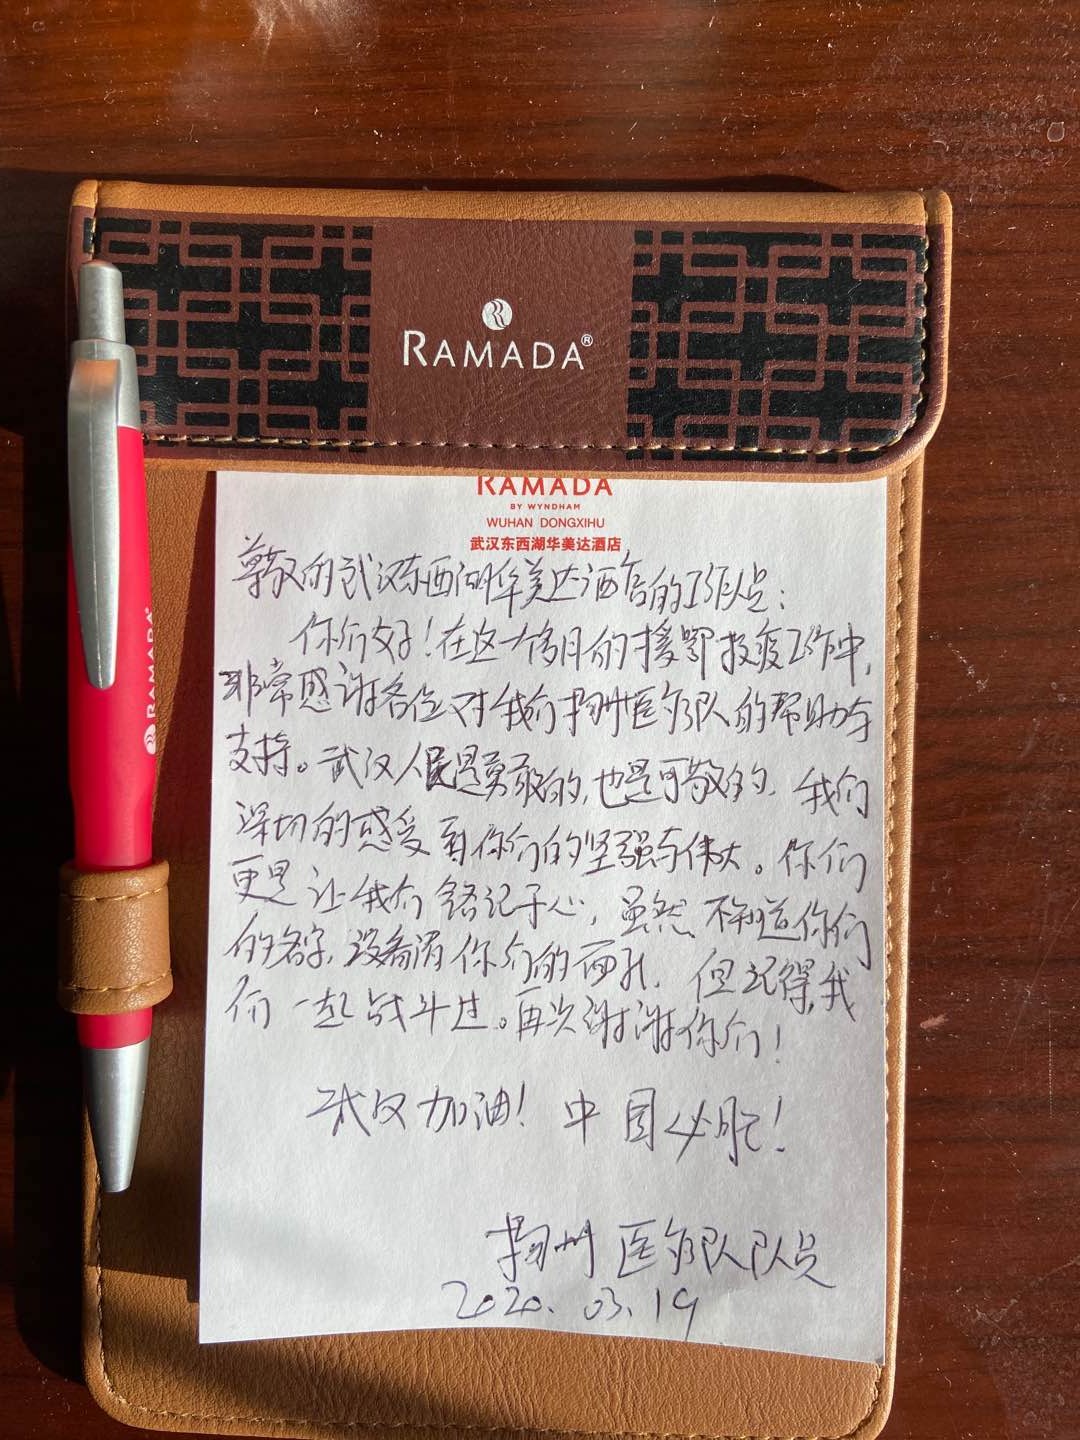 RAMADA®
RAMADA®
RAMADA
BY WYNDHAM
WUHAN DONGXIHU
武汉东西湖华美达酒店
尊敬的武汉东西湖华美达酒店的工作人员:
你们好!在这一个多月的援鄂抗疫工作中,
非常感谢各位对我们扬州医疗队的帮助与
支持。武汉人民是勇敢的,也是可敬的,我们
深切的感受到你们的坚强与伟大。你们
更是让我们铭记于心,虽然不知道你们
的名字,没看清你们的面孔,但记得我
们一起战斗过。再次谢谢你们!
武汉加油!中国必胜!
扬州医疗队队员
2020.03.19